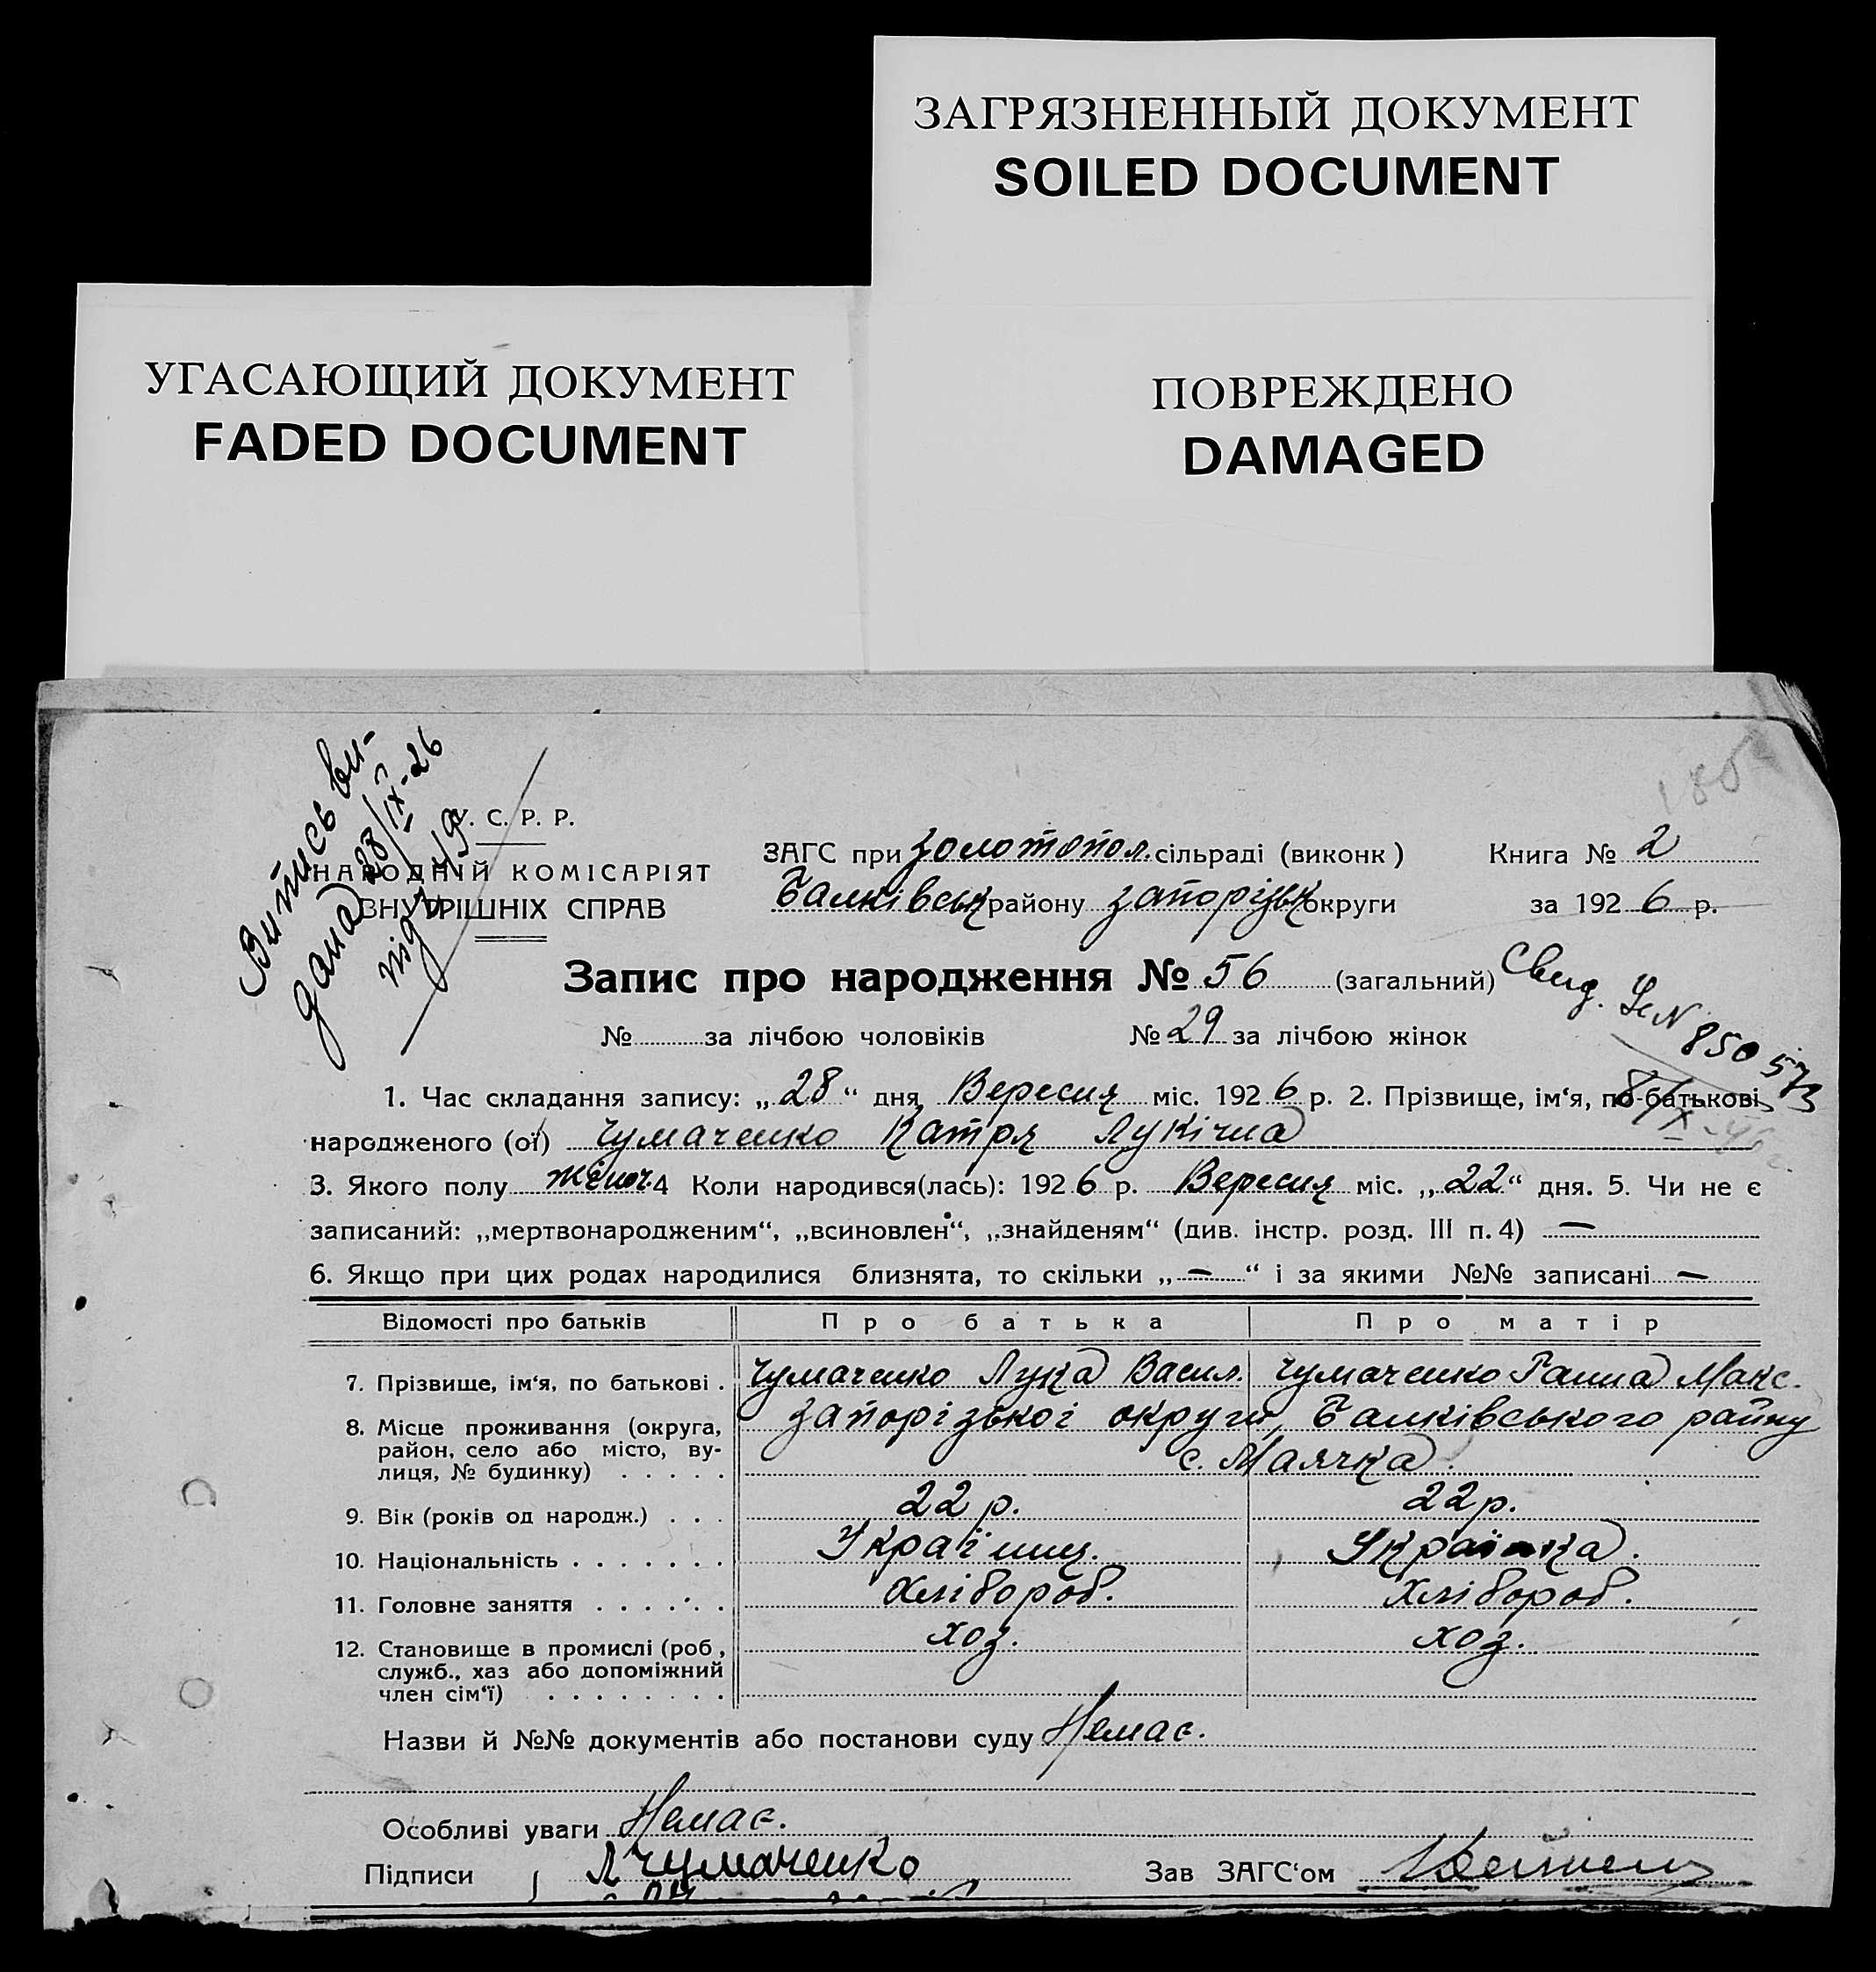 ЗАГРЯЗНЕННЫЙ ДОКУМЕНТ
SOILED DOCUMENT
УГАСАЮЩИЙ ДОКУМЕНТ
FADED DOCUMENT
ПОВРЕЖДЕНО
DAMAGED
Випись ви-
дана 28/IX-26
під
У. С. Р. Р.
НАРОДНІЙ КОМІСАРІЯТ
ВНУТРІШНІХ СПРАВ
ЗАГС при Золотопол. сільраді (виконк)
Балківськ району Запорізьк округи
Книга № 2
за 1926 р.
Запис про народження № 56 (загальний)
Свид. N 850573
8/X-46 г.
№ за лічбою чоловіків № 29 за лічбою жінок
1. Час складання запису: „28“ дня Вересня міс. 1926 р. 2. Прізвище, ім‘я, по-батькові
народженого (ої) Чумаченко Катря Лукічна
3. Якого полу жіноч. 4 Коли народився(лась): 1926 р. Вересня міс. „22“ дня. 5. Чи не є
записаний: „мертвонародженим“, „всиновлен“, „знайденям“ (див. інстр. розд. III п. 4) —
6. Якщо при цих родах народилися близнята, то скільки „—“ і за якими №№ записані —
Відомості про батьків Про батька Про матір
7. Прізвище, ім‘я, по батькові . Чумаченко Лука Васил. Чумаченко Ганна Макс.
8. Місце проживання (округа, Запорізької округи, Балківського району
район, село або місто, ву- с. Маячка.
лиця, № будинку) . . . . .
9. Вік (років од народж.) . . . 22 р. 22 р.
10. Національність . . . . . . . Українец. Українка.
11. Головне заняття . . . . . . Хлібороб. Хлібороб.
12. Становище в промислі (роб, хоз. хоз.
служб., хаз або допоміжний
член сім‘ї) . . . . . . . .
Назви й №№ документів або постанови суду Немає.
Особливі уваги Немає.
Підписи Л Чумаченко Зав ЗАГС‘ом